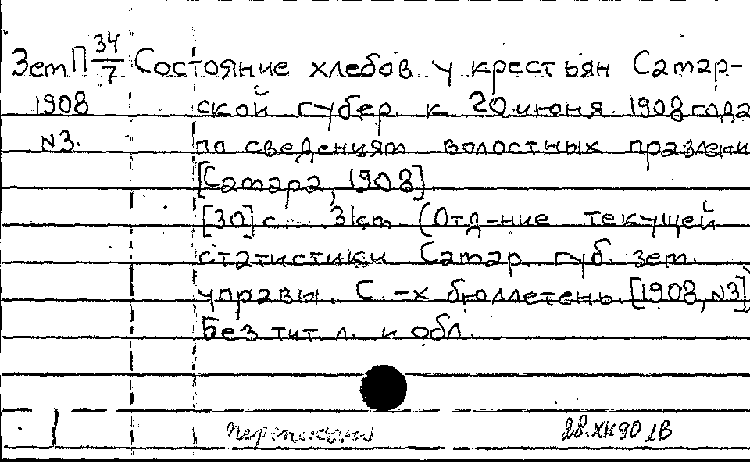 Зем П 34/7 Состояние хлебов у крестьян Самар-
1908 ской губер. к 20 июня 1908 года
№3. по сведениям волостных правлени
[Самара, 1908]
[30] с. 3 кт (Отд-ние текущей
статистики Самар. губ. зем.
управы. С.-х бюллетень [1908, №3]
Без тит. л. и обл.
28.XII 90